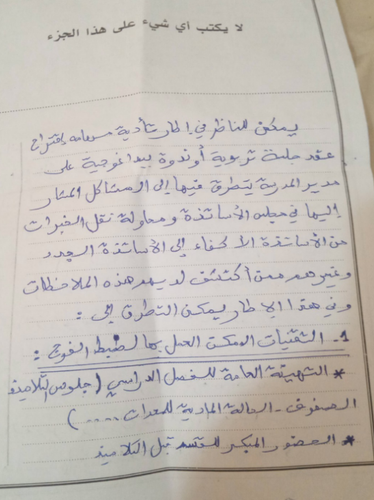 لا يكتب أي شيء على هذا الجزء
يمكن للناظر في إطار تأدية مهامه اقتراح
عقد جلسة تربوية أو ندوة بيداغوجية على
مدير المدرسة يتطرق فيها إلى المشاكل المشار
إليها في مجلس الأساتذة ومحاولة نقل الخبرات
من الأساتذة الأكفاء إلى الأساتذة الجدد
وغيرهم ممن أكتشف لديهم هذه الملاحظات
وفي هذا الإطار يمكن التطرق إلى :
1- التقنيات الممكن العمل بها لضبط الفوج :
* التهيئة العامة للفصل الدراسي ( جلوس التلاميذ
الصفوف - الحالة المادية للمعدات ..... )
* الحضور المبكر للقسم قبل التلاميذ